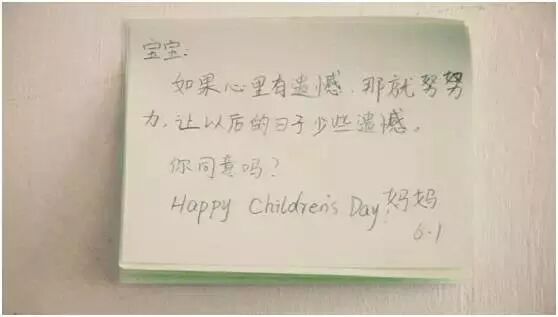 宝宝:
如果心里有遗憾，那就努努
力，让以后的日子少些遗憾。
你同意吗？
Happy Children's Day! 妈妈
6.1